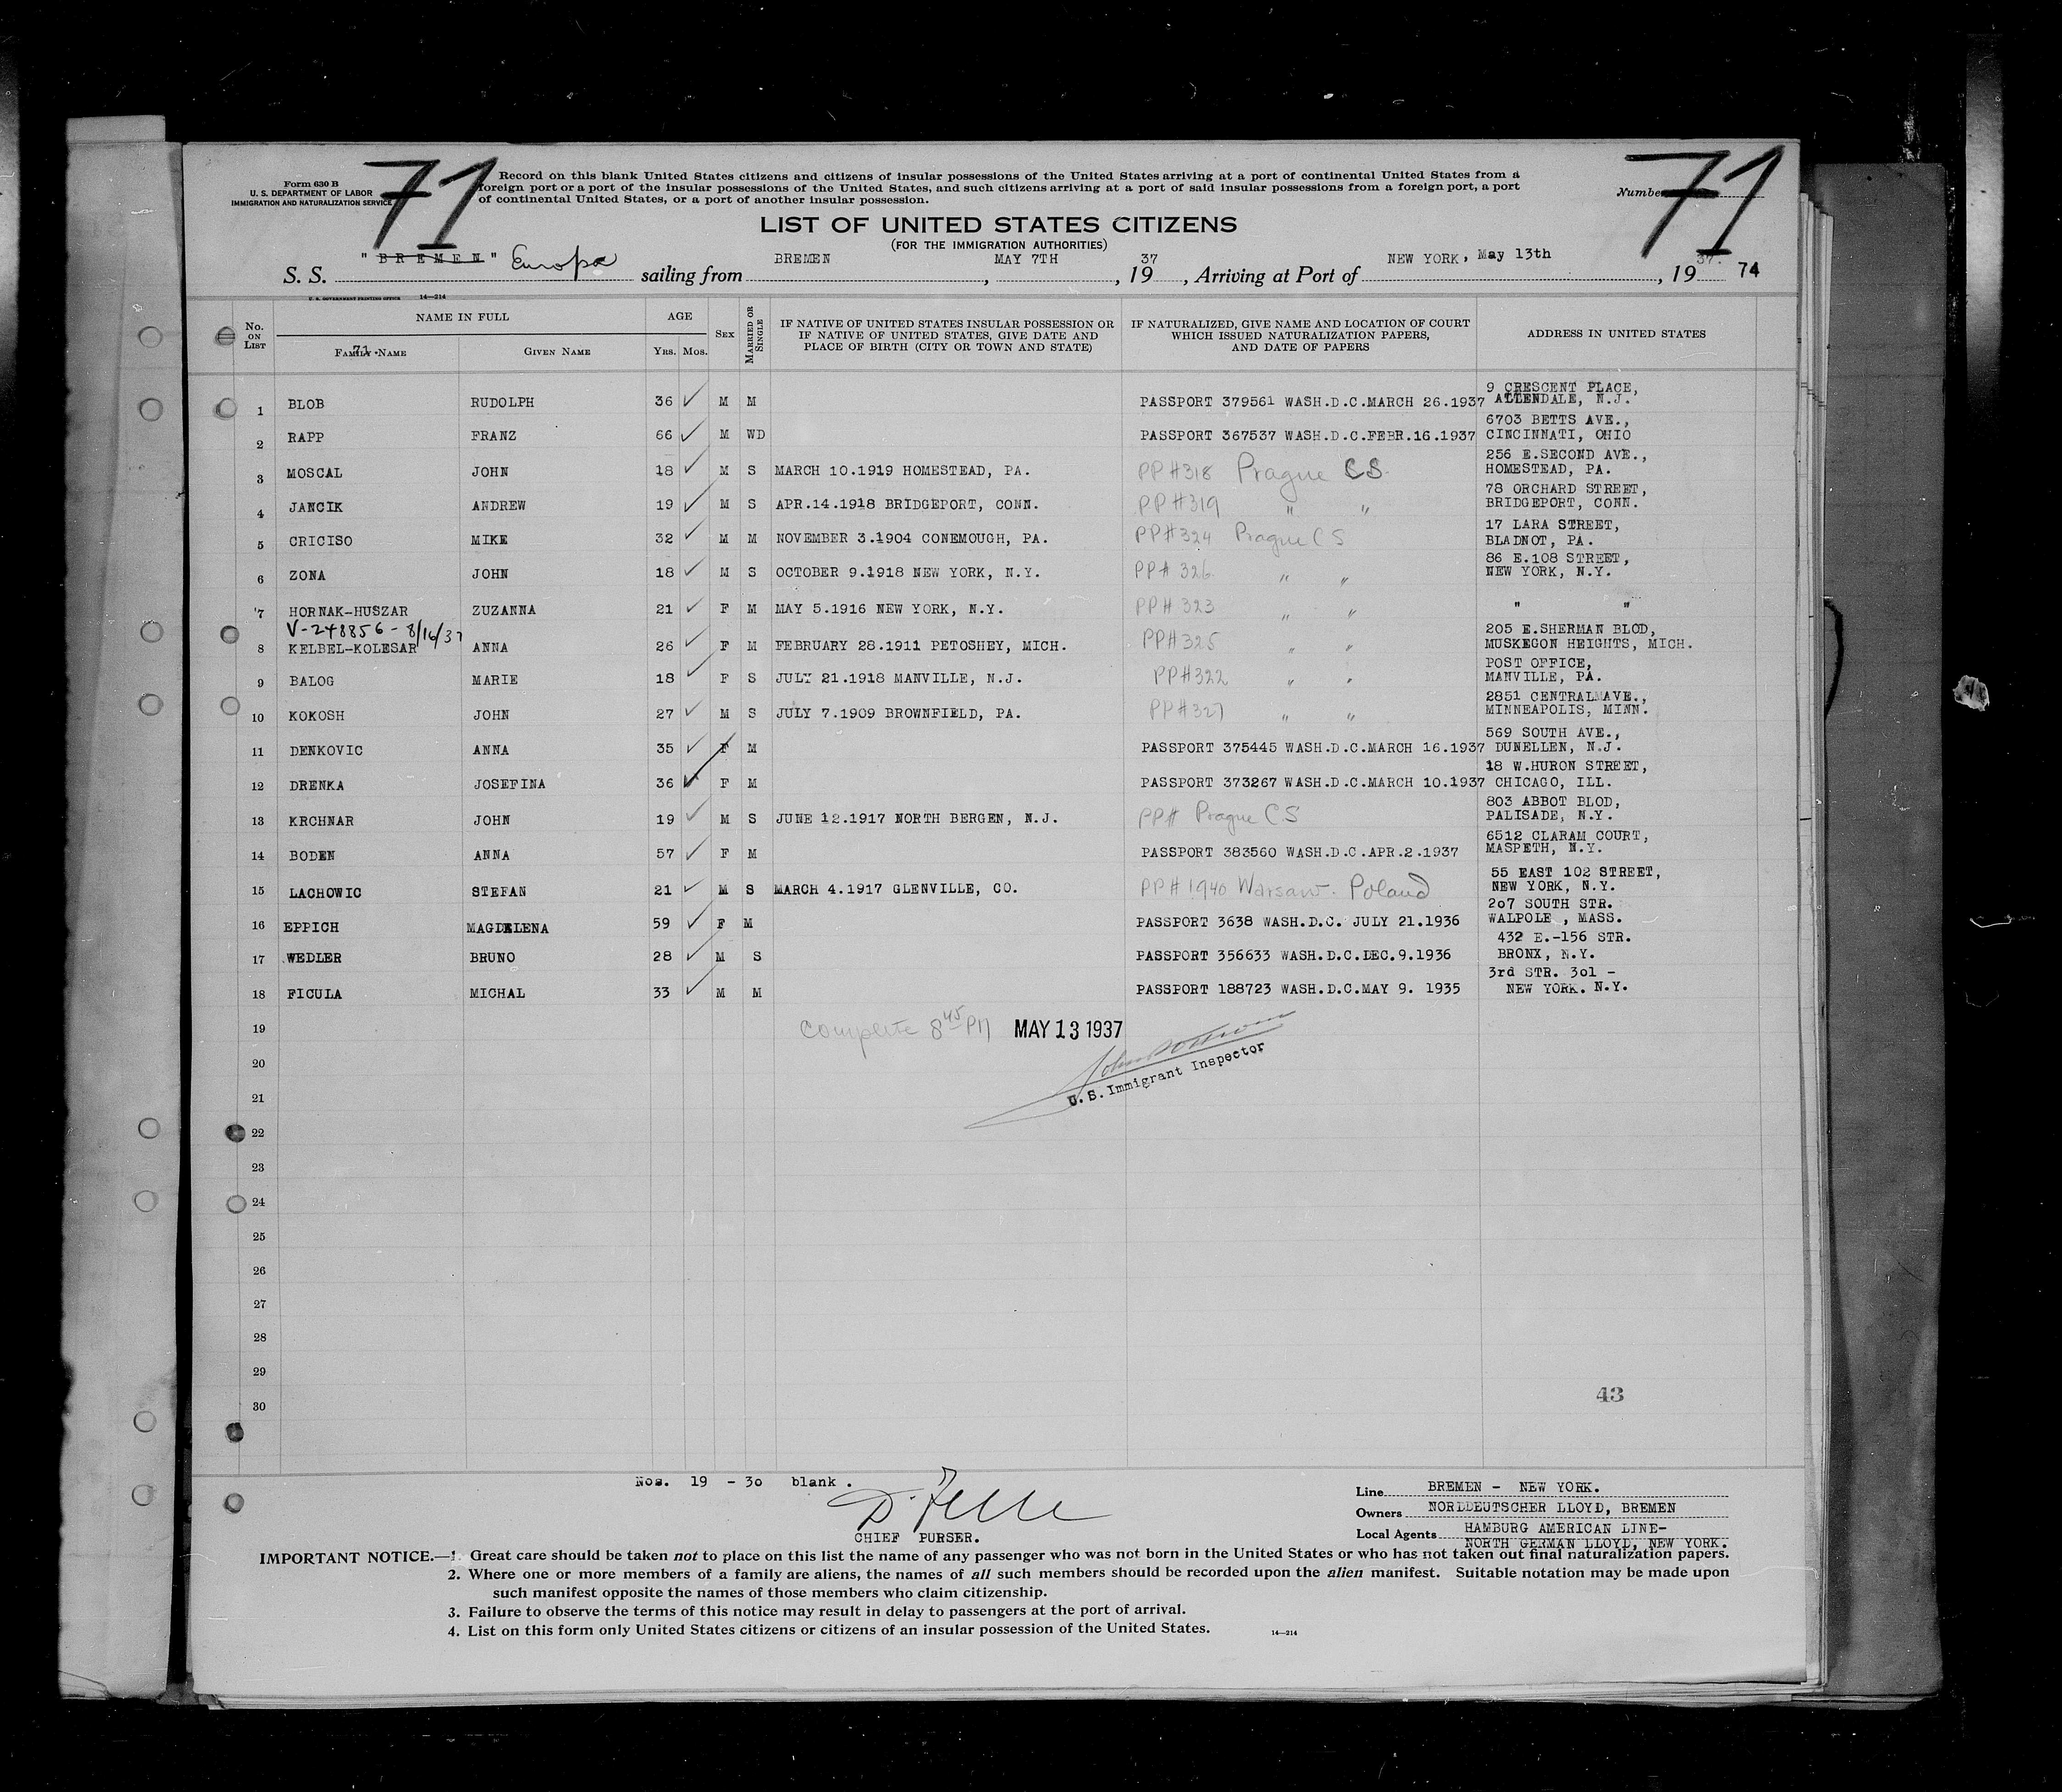 71
71
Form 630 B
U. S. DEPARTMENT OF LABOR
IMMIGRATION AND NATURALIZATION SERVICE
Record on this blank United States citizens and citizens of insular possessions of the United States arriving at a port of continental United States from a
foreign port or a port of the insular possessions of the United States, and such citizens arriving at a port of said insular possessions from a foreign port, a port
of continental United States, or a port of another insular possession.
Number
LIST OF UNITED STATES CITIZENS
(FOR THE IMMIGRATION AUTHORITIES)
S. S. "BREMEN" Europa sailing from BREMEN, MAY 7TH, 1937, Arriving at Port of NEW YORK, May 13th, 1937. 74
U. S. GOVERNMENT PRINTING OFFICE 14—214
No. ON LIST
NAME IN FULL
71.
FAMILY NAME
GIVEN NAME
AGE
YRS. MOS.
SEX
MARRIED OR SINGLE
IF NATIVE OF UNITED STATES INSULAR POSSESSION OR
IF NATIVE OF UNITED STATES, GIVE DATE AND
PLACE OF BIRTH (CITY OR TOWN AND STATE)
IF NATURALIZED, GIVE NAME AND LOCATION OF COURT
WHICH ISSUED NATURALIZATION PAPERS,
AND DATE OF PAPERS
ADDRESS IN UNITED STATES
1 BLOB RUDOLPH 36 ✓ M M PASSPORT 379561 WASH.D.C.MARCH 26.1937 9 CRESCENT PLACE,
ALLENDALE, N.J.
2 RAPP FRANZ 66 ✓ M WD PASSPORT 367537 WASH.D.C.FEBR.16.1937 6703 BETTS AVE.,
CINCINNATI, OHIO
3 MOSCAL JOHN 18 ✓ M S MARCH 10.1919 HOMESTEAD, PA. PP#318 Prague CS. 256 E.SECOND AVE.,
HOMESTEAD, PA.
4 JANCIK ANDREW 19 ✓ M S APR.14.1918 BRIDGEPORT, CONN. PP#319 " " 78 ORCHARD STREET,
BRIDGEPORT, CONN.
5 CRICISO MIKE 32 ✓ M M NOVEMBER 3.1904 CONEMOUGH, PA. PP#324 Prague CS 17 LARA STREET,
BLADNOT, PA.
6 ZONA JOHN 18 ✓ M S OCTOBER 9.1918 NEW YORK, N.Y. PP# 326 " " 86 E.108 STREET,
NEW YORK, N.Y.
7 HORNAK-HUSZAR ZUZANNA 21 ✓ F M MAY 5.1916 NEW YORK, N.Y. PP# 323 " " " "
V-248856 - 8/16/37
8 KELBEL-KOLESAR ANNA 26 ✓ F M FEBRUARY 28.1911 PETOSHEY, MICH. PP#325 " " 205 E.SHERMAN BLOD,
MUSKEGON HEIGHTS, MICH.
9 BALOG MARIE 18 ✓ F S JULY 21.1918 MANVILLE, N.J. PP#322 " " POST OFFICE,
MANVILLE, PA.
10 KOKOSH JOHN 27 ✓ M S JULY 7.1909 BROWNFIELD, PA. PP#327 " " 2851 CENTRAL AVE.,
MINNEAPOLIS, MINN.
11 DENKOVIC ANNA 35 ✓ F M PASSPORT 375445 WASH.D.C.MARCH 16.1937 569 SOUTH AVE.,
DUNELLEN, N.J.
12 DRENKA JOSEFINA 36 ✓ F M PASSPORT 373267 WASH.D.C.MARCH 10.1937 18 W.HURON STREET,
CHICAGO, ILL.
13 KRCHNAR JOHN 19 ✓ M S JUNE 12.1917 NORTH BERGEN, N.J. PP# Prague C.S 803 ABBOT BLOD,
PALISADE, N.Y.
14 BODEN ANNA 57 ✓ F M PASSPORT 383560 WASH.D.C.APR.2.1937 6512 CLARAM COURT,
MASPETH, N.Y.
15 LACHOWIC STEFAN 21 ✓ M S MARCH 4.1917 GLENVILLE, CO. PP#1940 Warsaw. Poland 55 EAST 102 STREET,
NEW YORK, N.Y.
16 EPPICH MAGDELENA 59 ✓ F M PASSPORT 3638 WASH.D.C. JULY 21.1936 207 SOUTH STR.
WALPOLE , MASS.
17 WEDLER BRUNO 28 ✓ M S PASSPORT 356633 WASH.D.C.DEC.9.1936 432 E.-156 STR.
BRONX, N.Y.
18 FICULA MICHAL 33 ✓ M M PASSPORT 188723 WASH.D.C.MAY 9. 1935 3rd STR. 3o1 -
NEW YORK. N.Y.
19 Complete 8 45 PM MAY 13 1937
20
U.S. Immigrant Inspector
21
22
23
24
25
26
27
28
29
43
30
Nos. 19 - 3o blank .
CHIEF PURSER.
Line BREMEN - NEW YORK.
Owners NORDDEUTSCHER LLOYD, BREMEN
Local Agents HAMBURG AMERICAN LINE-
NORTH GERMAN LLOYD, NEW YORK.
IMPORTANT NOTICE.—1. Great care should be taken not to place on this list the name of any passenger who was not born in the United States or who has not taken out final naturalization papers.
2. Where one or more members of a family are aliens, the names of all such members should be recorded upon the alien manifest. Suitable notation may be made upon
such manifest opposite the names of those members who claim citizenship.
3. Failure to observe the terms of this notice may result in delay to passengers at the port of arrival.
4. List on this form only United States citizens or citizens of an insular possession of the United States. 14—214